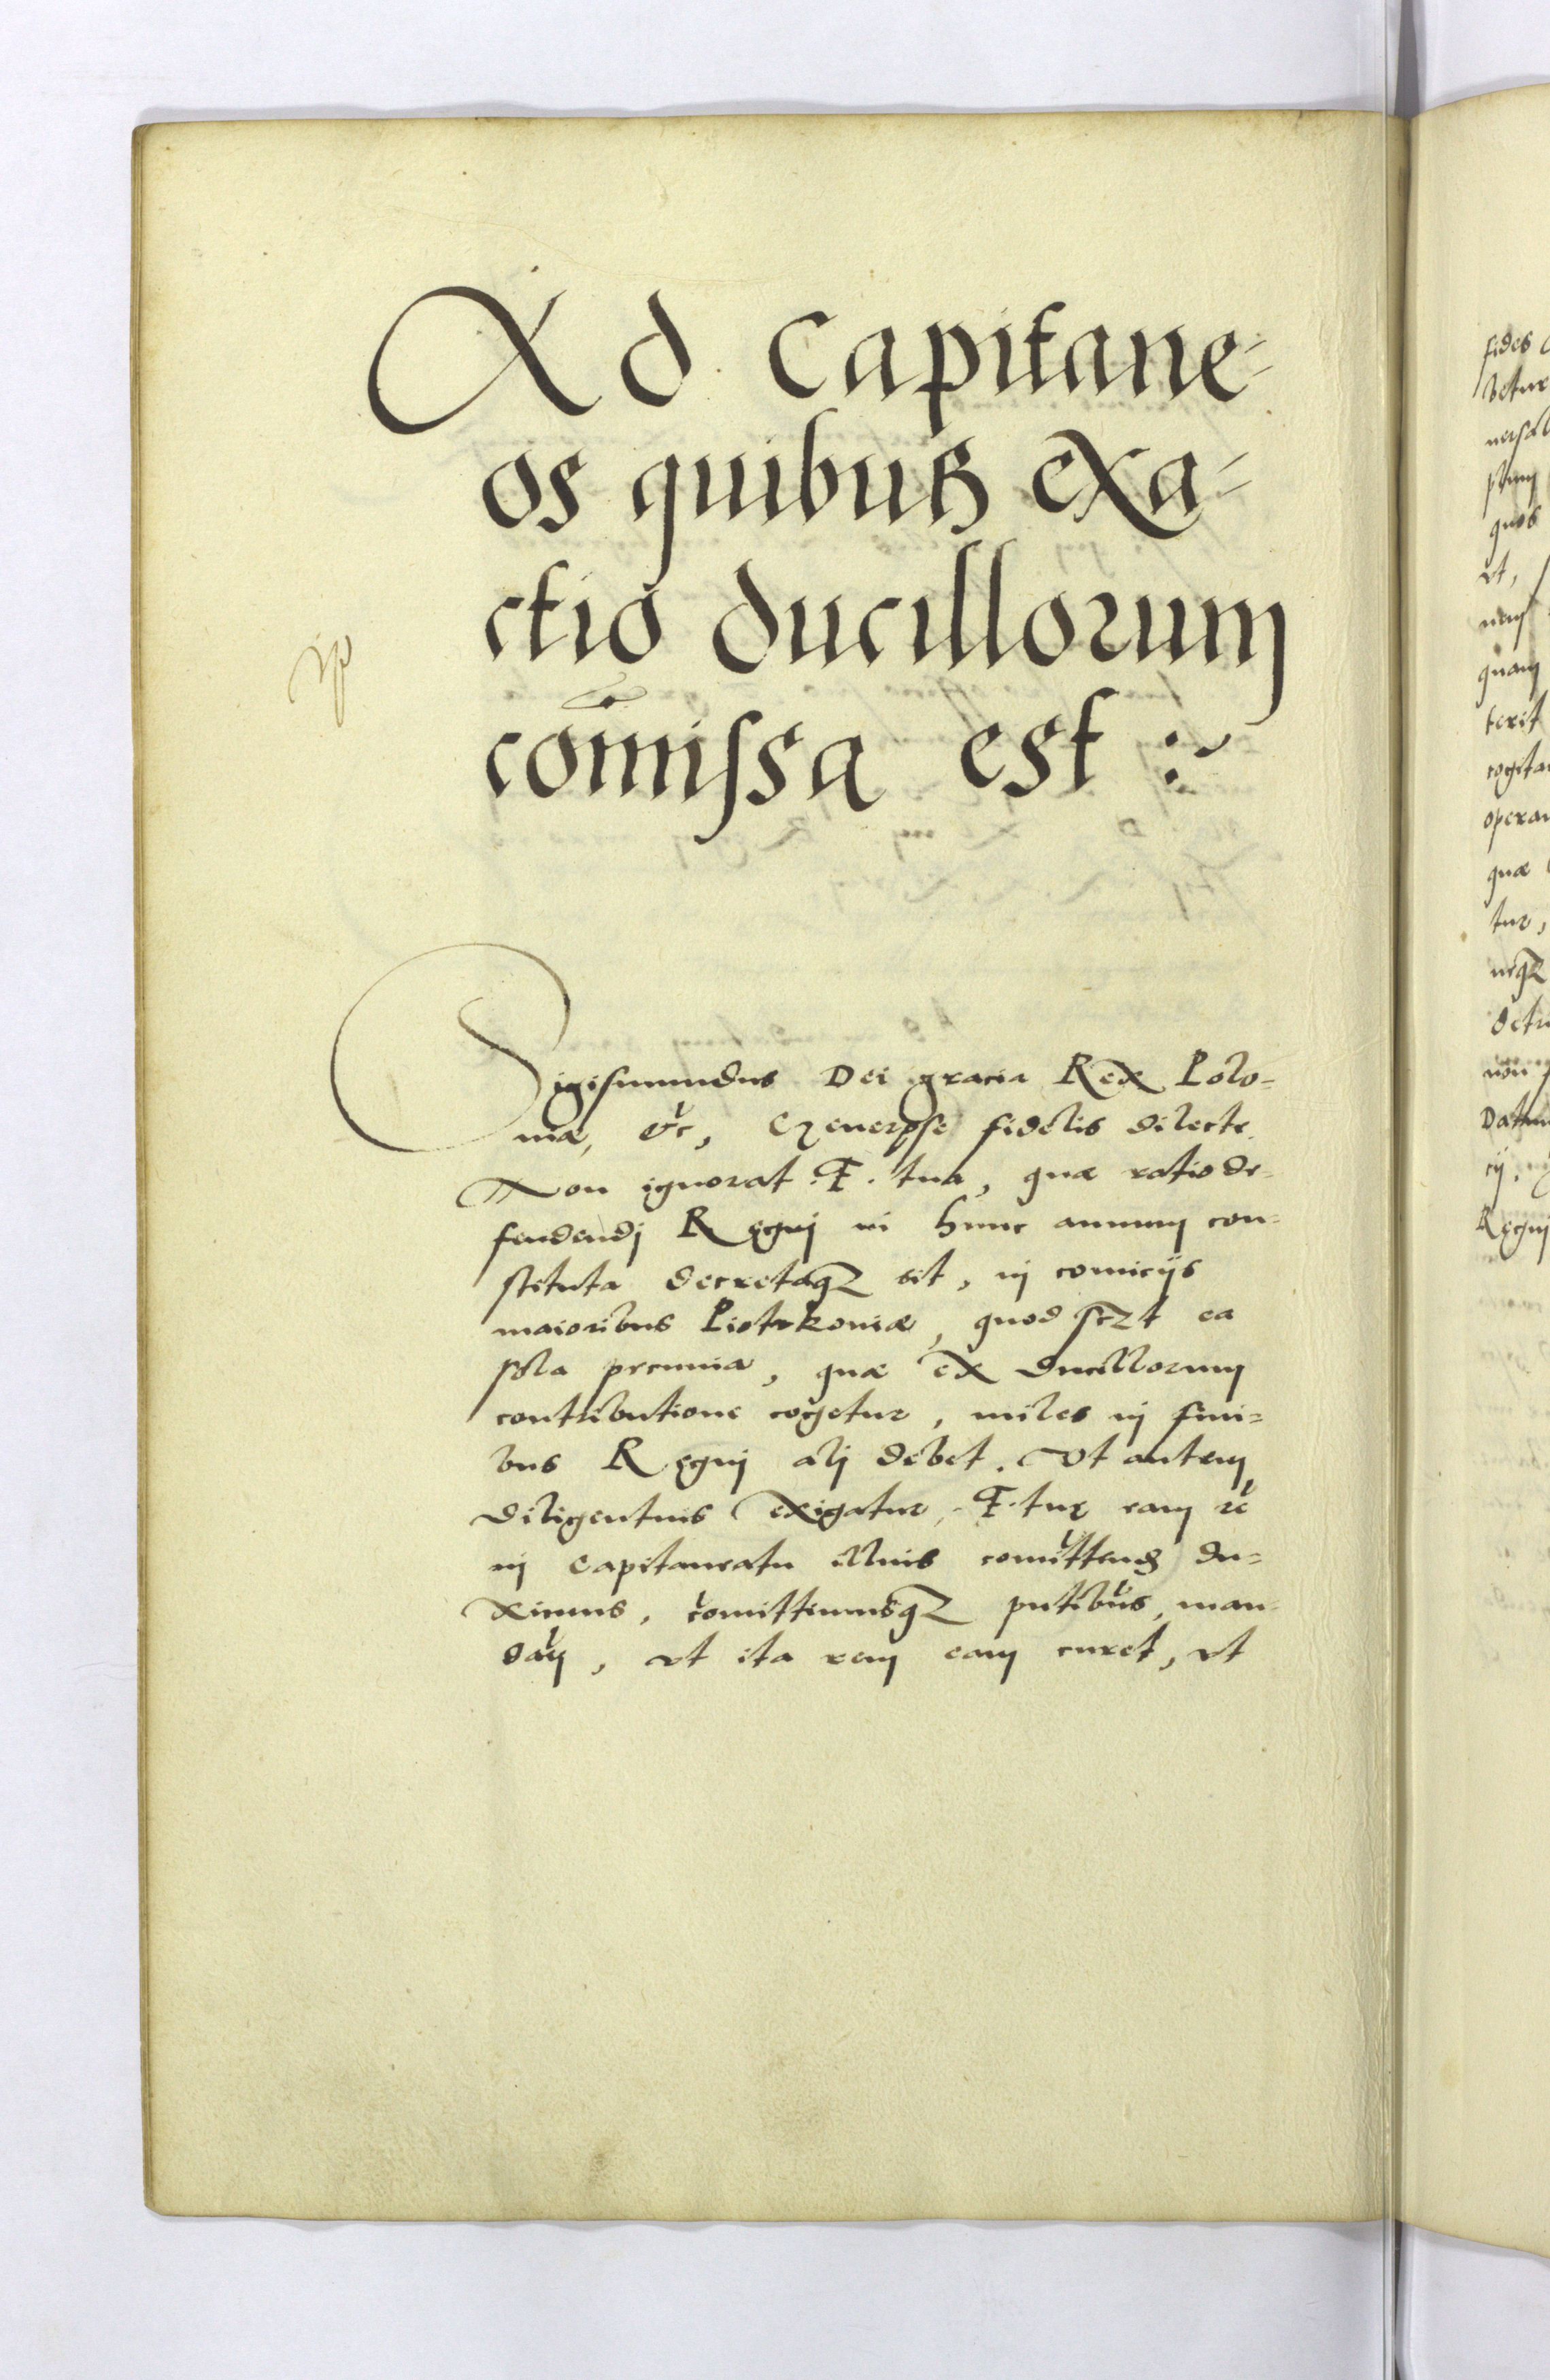 Ad Capitane-
os quibus exa-
ctio ducillorum
com̄issa est :~
Sigismundus Dei gracia Rex Polo-
niæ, &c, fidelis dilecte.
Non ignorat F. tua, quæ ratio de-
fendendj Regnj in hunc annum con-
stituta decretaq3 sit, in comicijs
maioribus Piotrkoniæ, quod sczt ea
sola pecunia, quæ ex ducillorum
contributione cogetur, miles in fini-
bus Regnj alj debet. Vt autem
diligentius exigatur, F. tuę eam rē
in Capitaneatu illius comittend du-
ximus, comittimusq3 pntibus, man-
dan, vt ita rem eam curet, vt
fides
betur
uersal
quos
vt,
quam
terit
cogita
opera
quæ
tur,
neq3
detri
non
Datum
cij.
Regnj